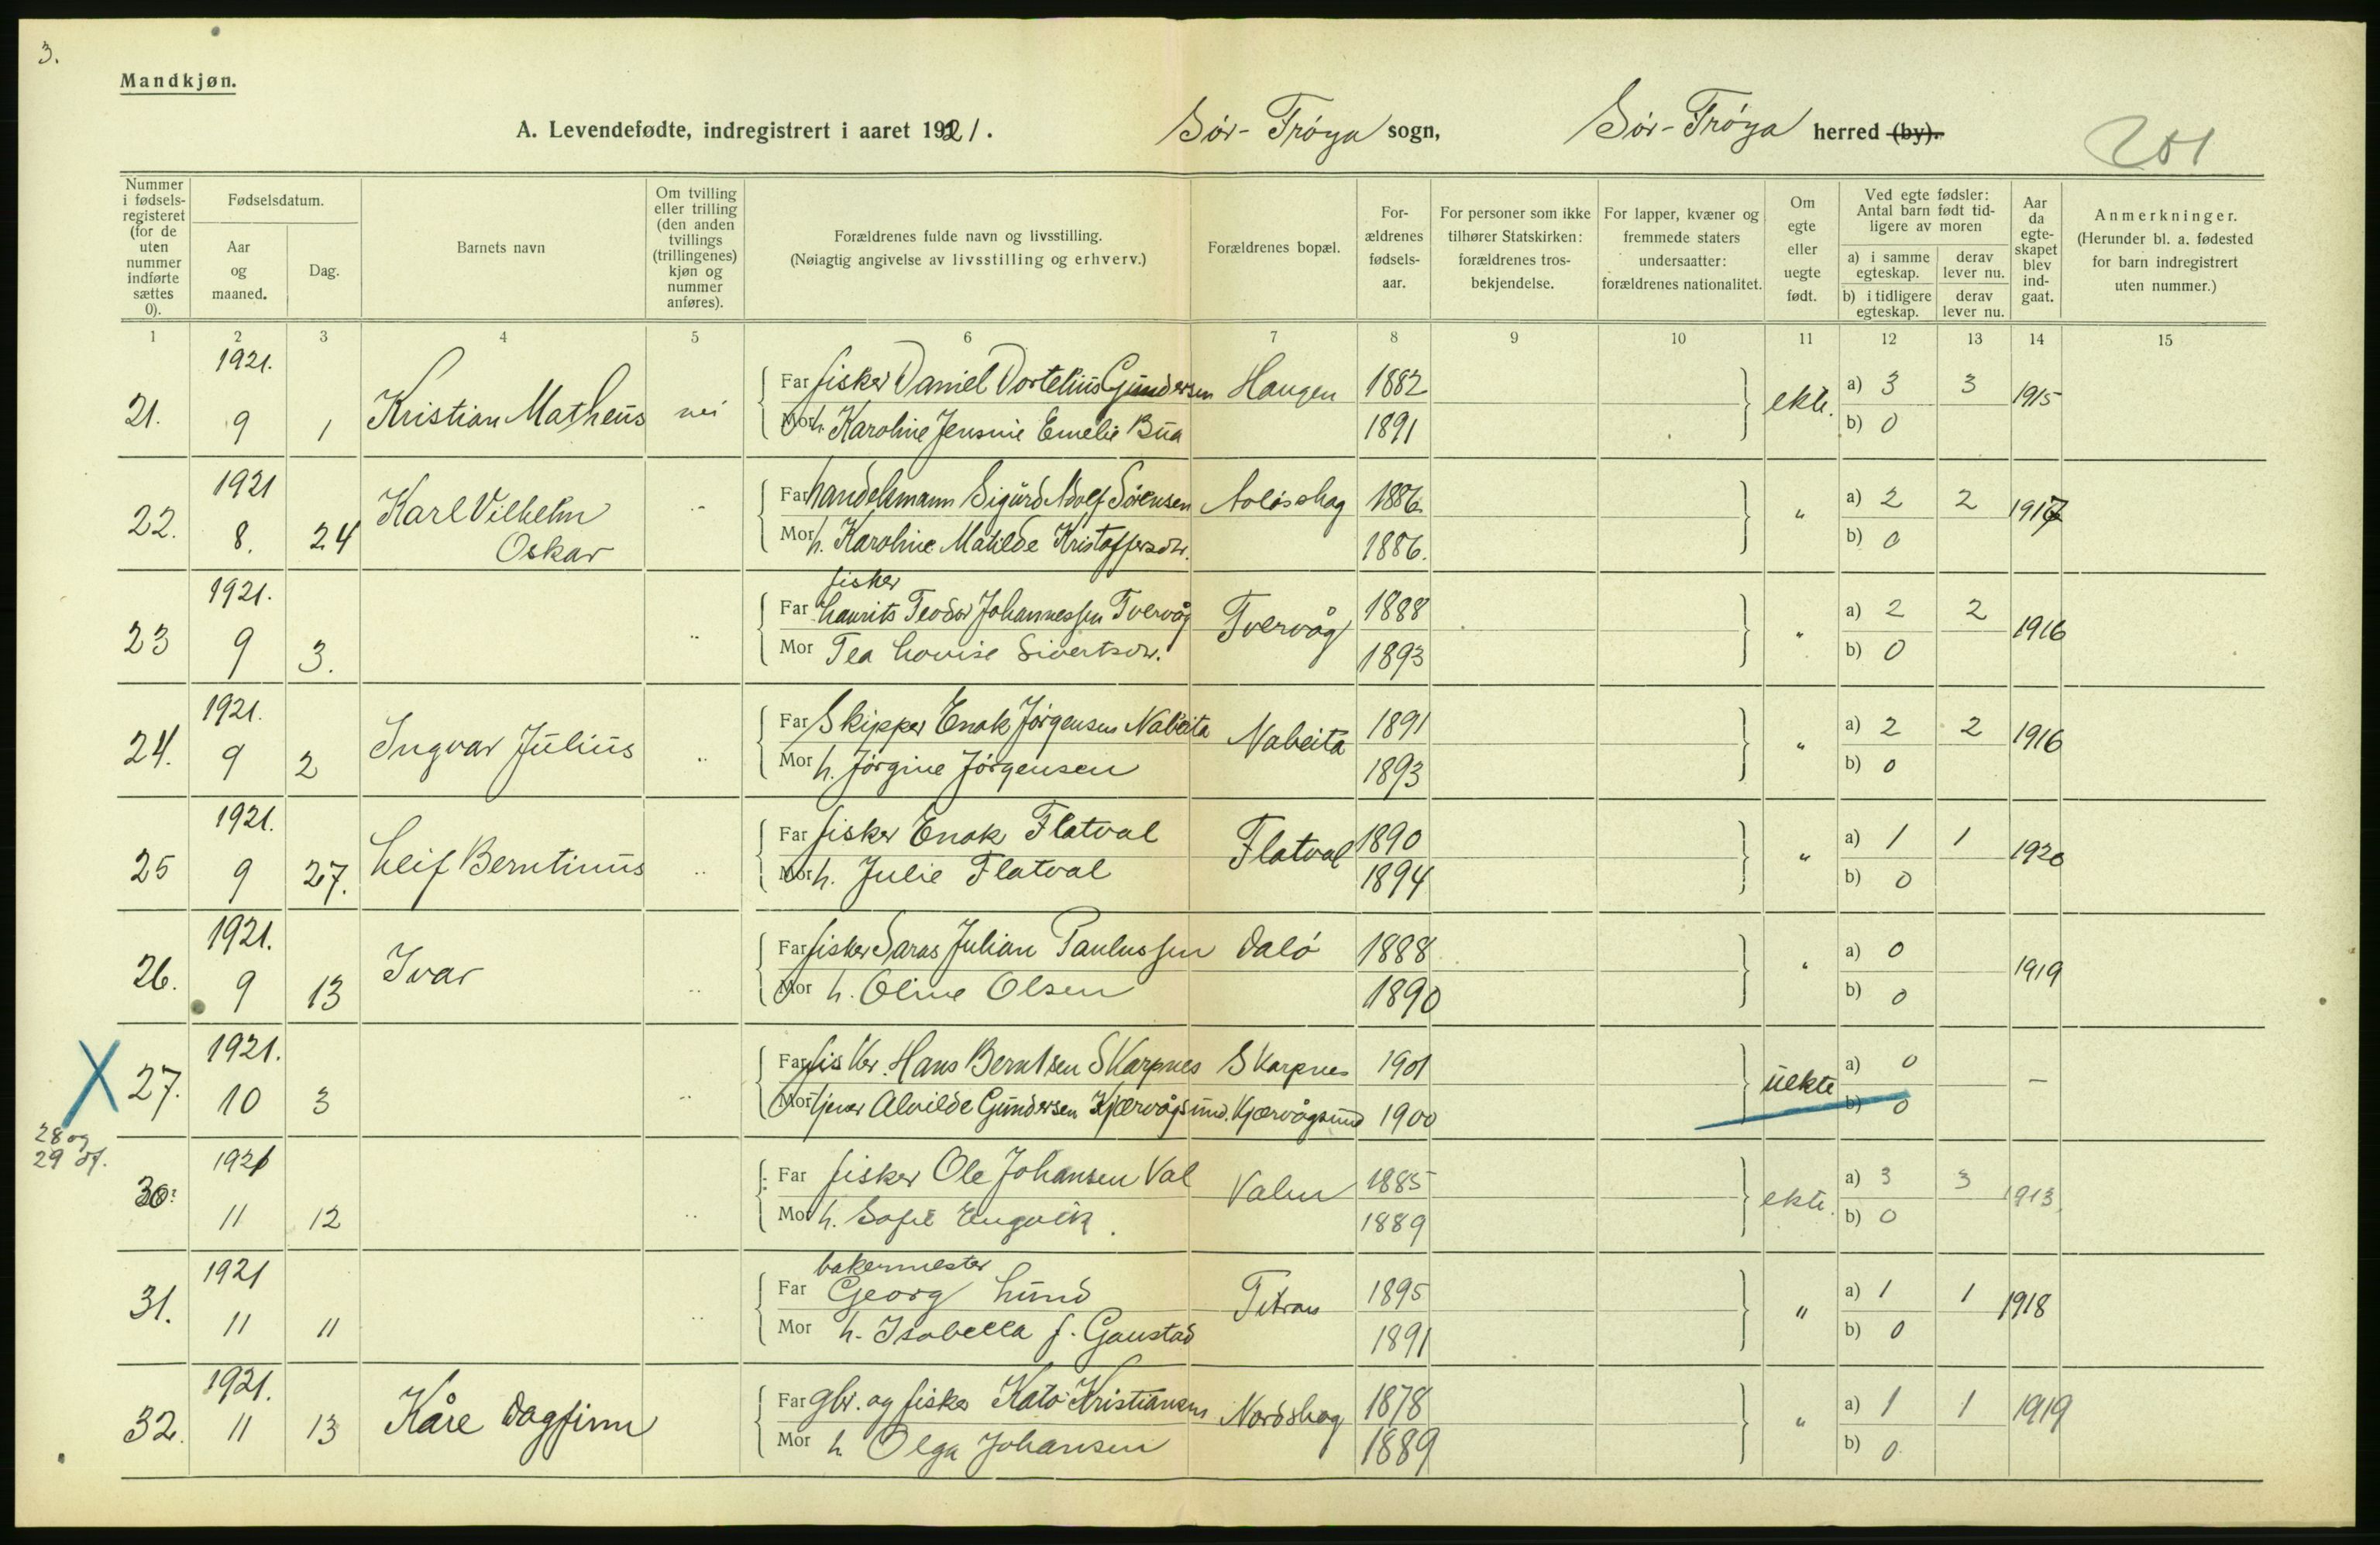 3.
Mandkjøn.
A. Levendefødte, indregistrert i aaret 1921. Sör-Fröya sogn, Sör-Fröya herred (by). 201
Nummer i fødselsregisteret (for de uten nummer indførte sættes 0).
Fødselsdatum.
Aar og maaned.
Dag.
Barnets navn
Om tvilling eller trilling (den anden tvillings (trillingenes) kjøn og nummer anføres).
Forældrenes fulde navn og livsstilling.
(Nøiagtig angivelse av livsstilling og erhverv.)
Forældrenes bopæl.
For-ældrenes fødsels-aar.
For personer som ikke tilhører Statskirken: forældrenes tros-bekjendelse.
For lapper, kvæner og fremmede staters undersaatter: forældrenes nationalitet.
Om egte eller uegte født.
Ved egte fødsler: Antal barn født tid-ligere av moren
a) i samme egteskap.
derav lever nu.
b) i tidligere egteskap.
derav lever nu.
Aar da egte-skapet blev ind-gaat.
Anmerkninger.
(Herunder bl. a. fødested for barn indregistrert uten nummer.)
1 2 3 4 5 6 7 8 9 10 11 12 13 14 15
1921.
21. 9 1 Kristian Matheus nei Far fisker Daniel Dortelius Gundersen Haugen 1882 ekte. a) 3 3 1915
Mor h. Karoline Jensine Emelie Bua 1891 b) 0
1921
22. 8. 24 Karl Vilhelm Oskar " Far handelsmann Sigurd Adolf Sörensen 1886 " a) 2 2 1917
Mor h. Karoline Matilde Kristoffersdtr. 1886. b) 0
1921. fisker
23 9 3. " Far Laurits Teodor Johannessen Tvervåg Tvervåg 1888 " a) 2 2 1916
Mor Tea Lovise Sivertsdtr. 1893 b) 0
1921.
24. 9 2 Ingvar Julius " Far Skipper Enok Jörgensen Nabeita Nabeita 1891 " a) 2 2 1916
Mor h. Jörgine Jörgensen 1893 b) 0
1921.
25 9 27. Leif Berntinus " Far fisker Enok Flatval Flatval 1890 " a) 1 1 1920
Mor h. Julie Flatval 1894 b) 0
1921.
26. 9 13 Ivar " Far fisker Saras Julian Paulussen Dalö 1888 " a) 0 1919
Mor h. Oline Olsen 1890 b) 0
1921.
X 27. 10 3 " Far fisker. Hans Berntsen Skarpnes Skarpnes 1901 uekte a) 0 —
Mor tjener Alvilde Gundersen Kjærvågsund. Kjærvågsund 1900 b) 0
28 og
29 df.
1921
30. 11 12 " Far fisker Ole Johansen Val Valen 1885 ekte. a) 3 3 1913
Mor h. Sofie Engvik. 1889 b) 0
1921 bakermester
31. 11 11 " Far Georg Lund Titran 1895 " a) 1 1 1918
Mor h. Isabella f. Gaustad 1891 b) 0
1921.
32. 11 13 Kåre Dagfinn Far gbr. og fisker Kato Kristiansen Nordskag 1878 " a) 1 1 1919
Mor h Olga Johansen 1889 b) 0